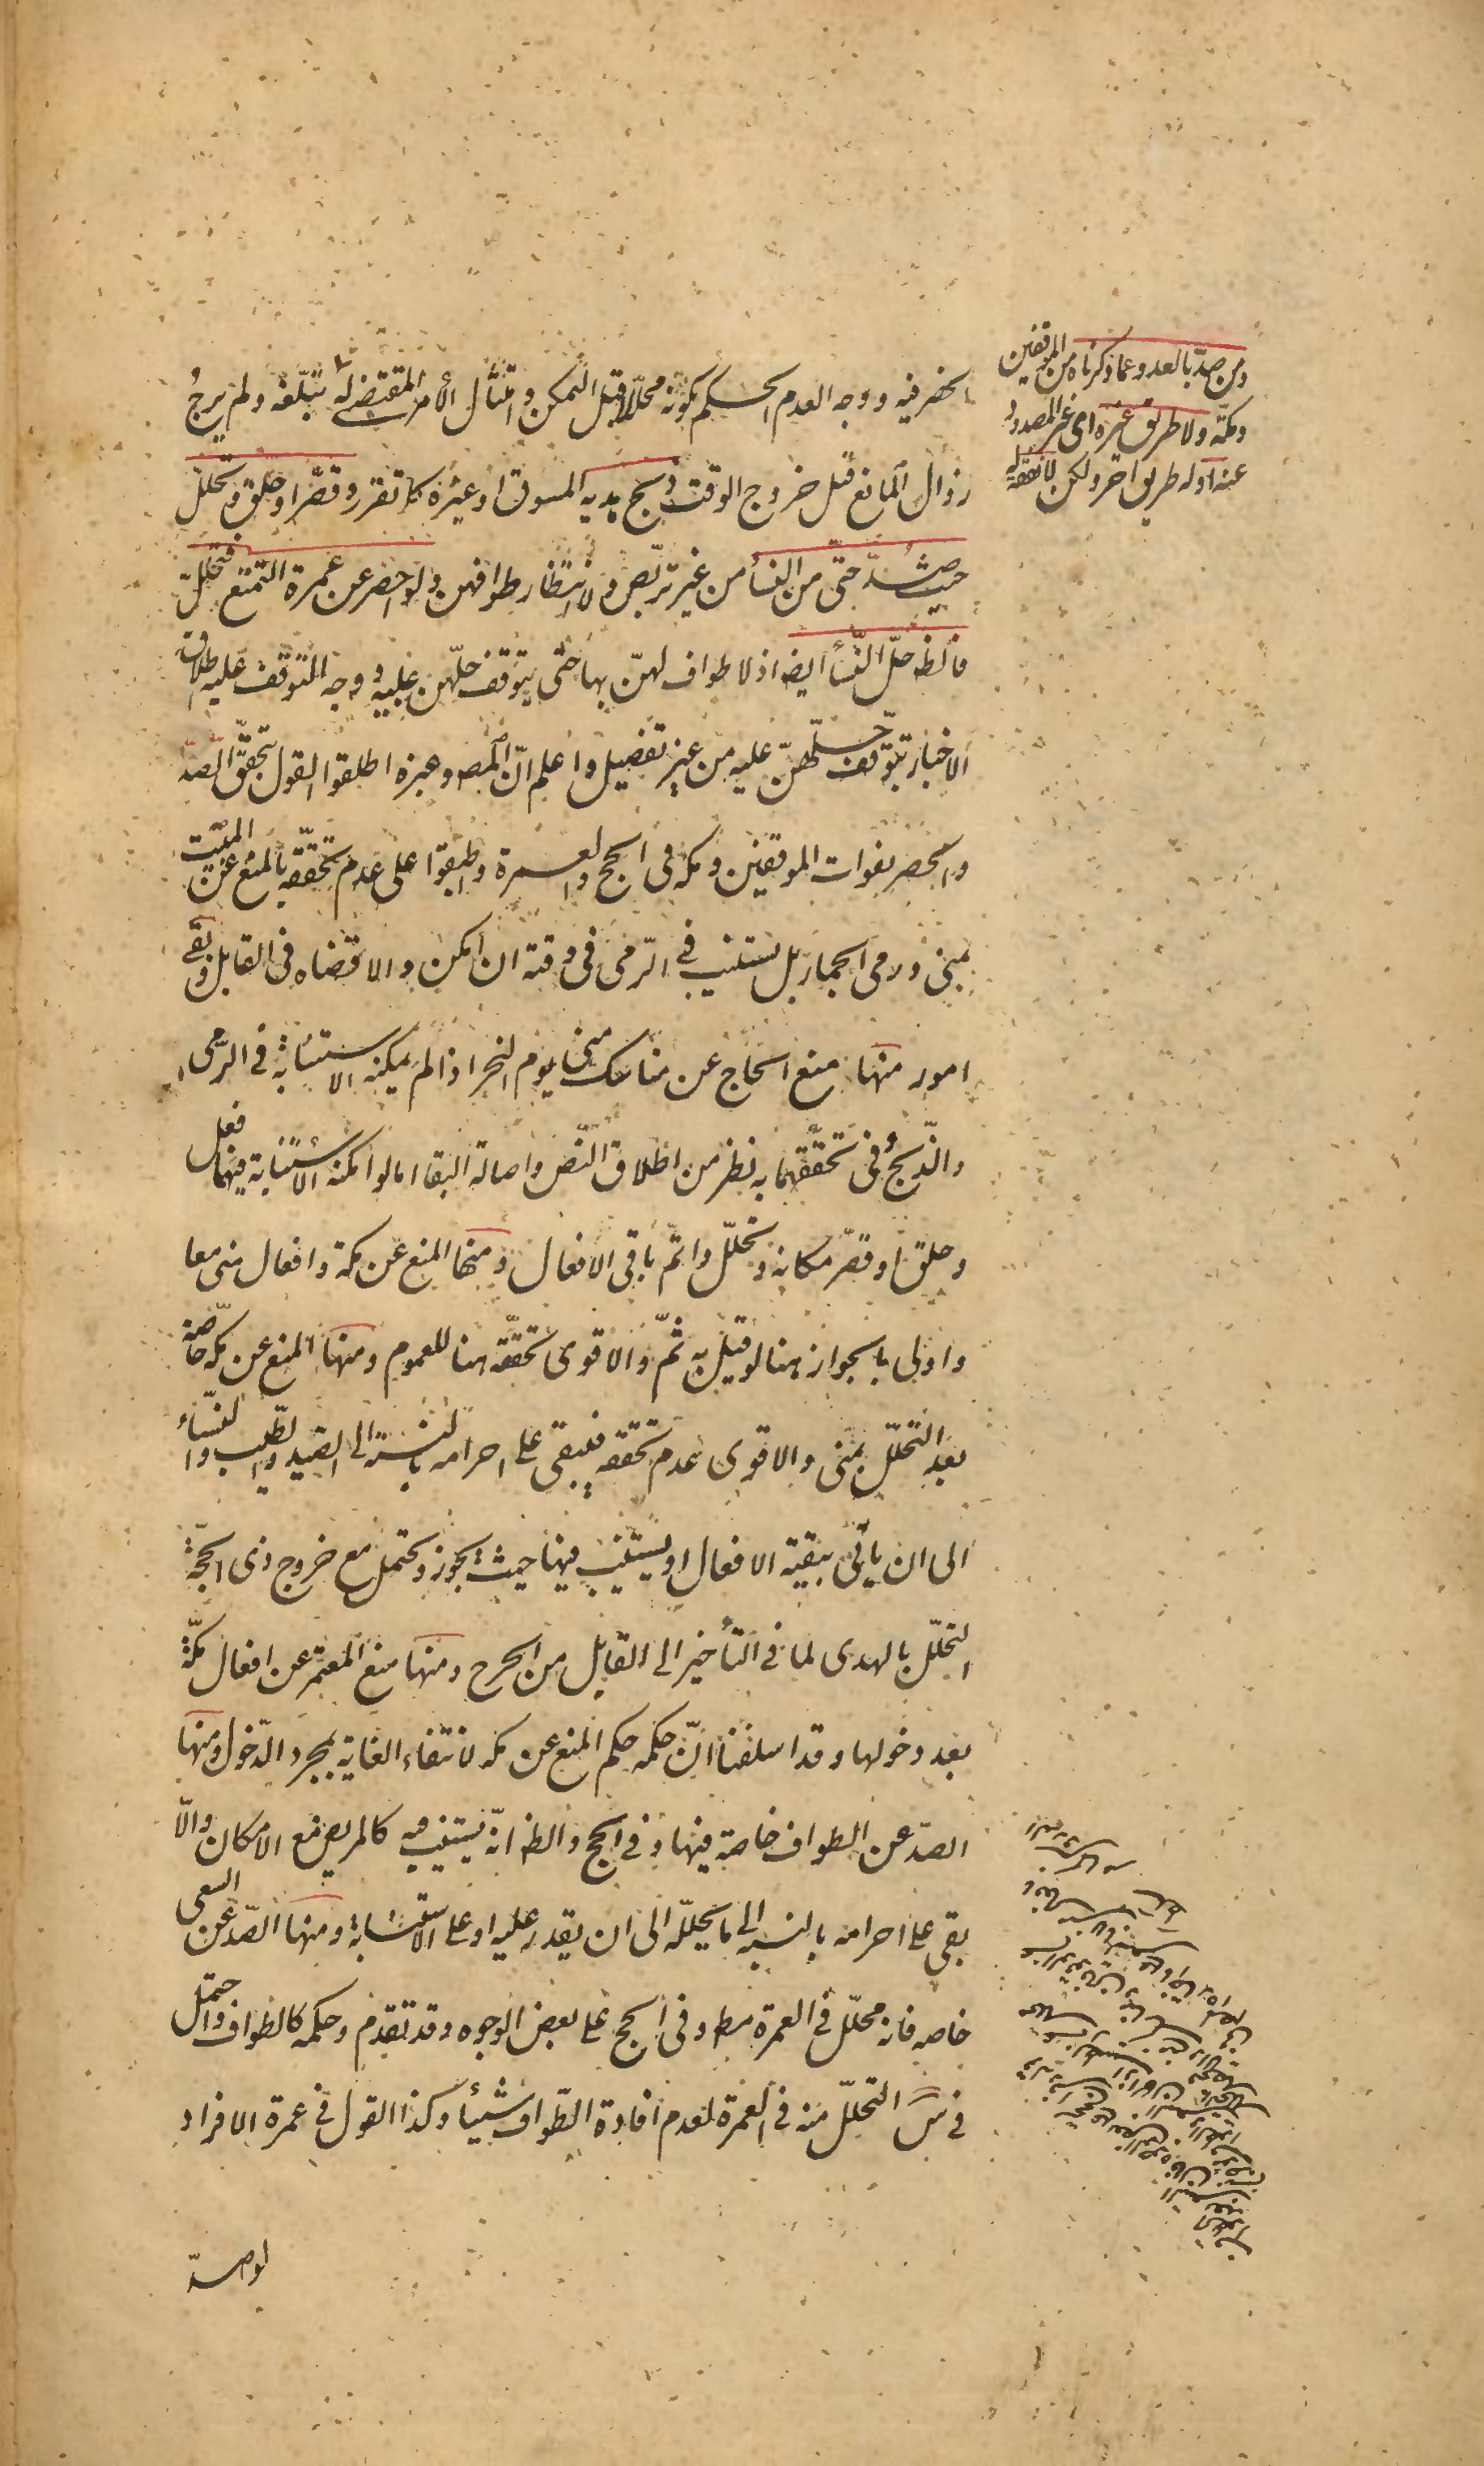 ومن صدّ بالعدو عما ذكرناه من الموقفين
ومكّة ولا طريق غيره اى غير المصدود
عنه او له طريق اخر ولكن لا نفقة له
الحصر فيه ووجه العدم الحكم بكونه محلّلا قبل التمكن وامتثال الأمر المقتضى له تبلّغه ولم يرجُ
زوال المانع قبل خروج الوقت ذبح هديه المسوق او غيره كما تقرر وقصّر او حلق وتحلّل
حيث صُدّ حتّى من النسأ من غير تربّص ولا انتظار طوافهن ولو احصر عن عمرة التمتع فتحلّل
فالظ حلّ النّسأ ايضا اذ لا طواف لهنّ بها حتى يتوقف حلّهن عليه ووجه التوقف عليه اطلاق
الاخبار بتوقف حلّهنّ عليه من غير تفصيل واعلم انّ المصـ وغيره اطلقوا القول بتحقّق الصّدّ
والحصر بفوات الموقفين ومكه فى الحج والعمرة واطبقوا على عدم تحقّقه بالمنع عن المبيت
بمنى ورمى الجمار بل يستنيب فى الرّمى فى وقته ان امكن والا قضاه فى القابل وبقى
امور منها منع الحاج عن مناسك منى يوم النحر اذا لم يمكنه الاستنابة فى الرّمى
والذّبح وفى تحقّقهما به نظر من اطلاق النّص واصالة البقا اما لو امكنه الاستنابة فيهما فعل
وحلق او قصّر مكانه وتحلّل واتمّ باقى الافعال ومنها المنع عن مكّة وافعال منى معا
واولى بالجواز هنا لو قيل به ثمّ والاقوى تحقّقه هنا للعموم ومنها المنع عن مكه خاصّة
بعد التحلّل بمنى والاقوى عدم تحققه فيبقى على احرامه بالنسبة الى الصيد والطّيب والنّسأ
الى ان يأتى ببقية الافعال او يستنيب فيها حيث يجوز ويحتمل مع خروج ذى الحجّة
التحلّل بالهدى لما فى التأخير الى القابل من الحرج ومنها منع المعتمر عن افعال مكّة
بعد دخولها وقد اسلفنا انّ حكمه حكم المنع عن مكه لانتفاء الغاية بمجرد الدّخول ومنها
الصدّ عن الطواف خاصة فيها وفى الحج والظ انّه يستنيب فيه كالمريض مع الامكان والّا
بقى على احرامه بالنسبة الى ما يحلّله الى ان يقدر عليه او على الاستنابة ومنها الصّد عن السعى
خاصه فانه محلّل فى العمرة مط وفى الحج على بعض الوجوه وقد تقدم وحكمه كالطواف واحتمل
فى س التحلّل منه فى العمرة لعدم افادة الطّواف شيئا وكذا القول فى عمرة الافراد
لو صدّ